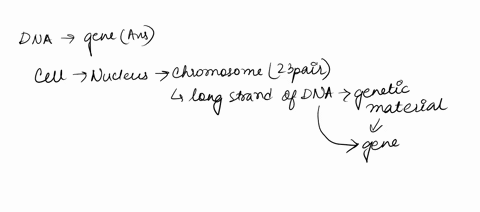 DNA → gene (Ans)
Cell → Nucleus → Chromosome (23 pair)
↳ long strand of DNA → genetic
material
↓
gene